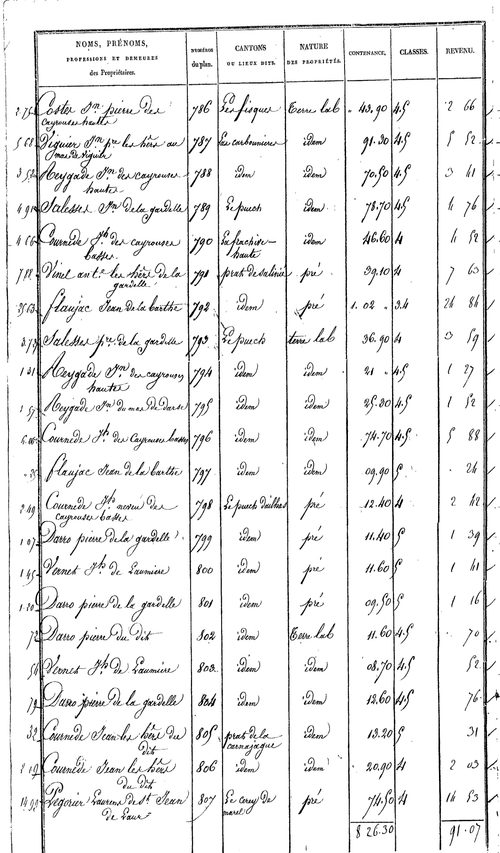 NOMS, PRÉNOMS, PROFESSIONS ET DEMEURES des Propriétaires. NUMÉROS du plan. CANTONS OU LIEUX DITS. NATURE DES PROPRIÉTÉS. CONTENANCE. CLASSES. REVENU.
Coster Jn pierre des cayrouses hautes 786 Les fisques Terre lab 43.90 4.5 2 66
Viguier Jn pre les hérs au mas de viguié 787 Les carbonnieres idem 91.30 4.5 5 52
Reygade Jn des cayrouses hautes 788 idem idem 70.50 4.5 3 41
Salesses Jn de la gardelle 789 Le puech idem 78.70 4.5 4 76
Cournede Jh des cayrouses basses 790 La franchise haute idem 46.60 4 4 52
Vinel ant. les hérs de la gardelle 791 prat de salinié pré 39.10 4 7 63
flaujac Jean de la barthe 792 idem pré 1.02 3.4 24 84
Salesses pre de la gardelle 793 Le puech terre lab 36.90 4 3 59
Reygade Jn des cayrouses hautes 794 idem idem 21 4.5 1 27
Reygade Jn du mas de 795 idem idem 25.30 4.5 1 52
Cournede Jh des Cayrouses basses 796 idem idem 74.70 4.5 5 88
flaujac Jean de la barthe 797 idem idem 09.90 5 24
Cournede Jh neveu des cayrouses basses 798 Le puech pré 12.40 4 2 42
Darro pierre de la gardelle 799 idem pré 11.40 5 1 39
Vernet Jh de Laumiere 800 idem pré 11.60 5 1 41
Darro pierre de la gardelle 801 idem pré 09.50 5 1 16
Darro pierre du dit 802 idem Terre lab 11.60 4.5 70
Vernet Jh de Laumiere 803 idem idem 08.70 4.5 52
Darro pierre de la gardelle 804 idem idem 12.60 4.5 76
Cournede Jean les hérs du dit 805 prat de la idem 13.20 5 31
Cournede Jean les hérs du dit 806 idem idem 20.90 4 2 03
Pegorier Laurens de St Jean 807 Le de pré 74.50 4 14 53
826.30 91.07